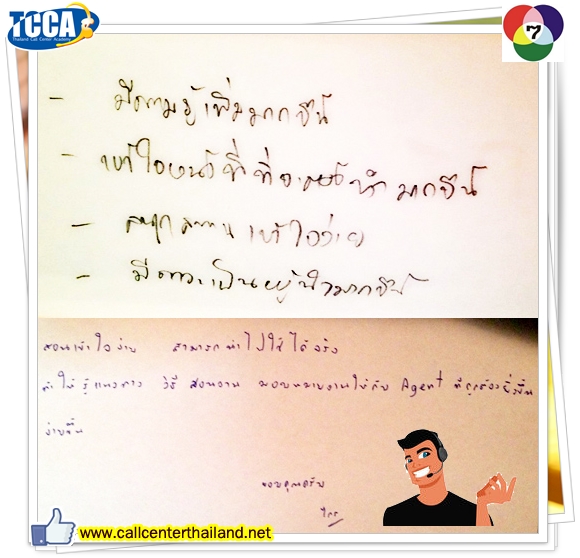 TCCA
Thailand Call Center Academy
7
- มีความรู้เพิ่มมากขึ้น
- เข้าใจหน้าที่ที่จะต้องทำมากขึ้น
- สนุกสนาน เข้าใจง่าย
- มีความเป็นผู้นำมากขึ้น
สอนเข้าใจง่าย สามารถนำไปใช้ได้จริง
ทำให้รู้แนวทาง วิธี สอนงาน มอบหมายงานให้กับ Agent ที่ถูกต้องยิ่งขึ้น
ง่ายขึ้น
ขอบคุณครับ
www.callcenterthailand.net